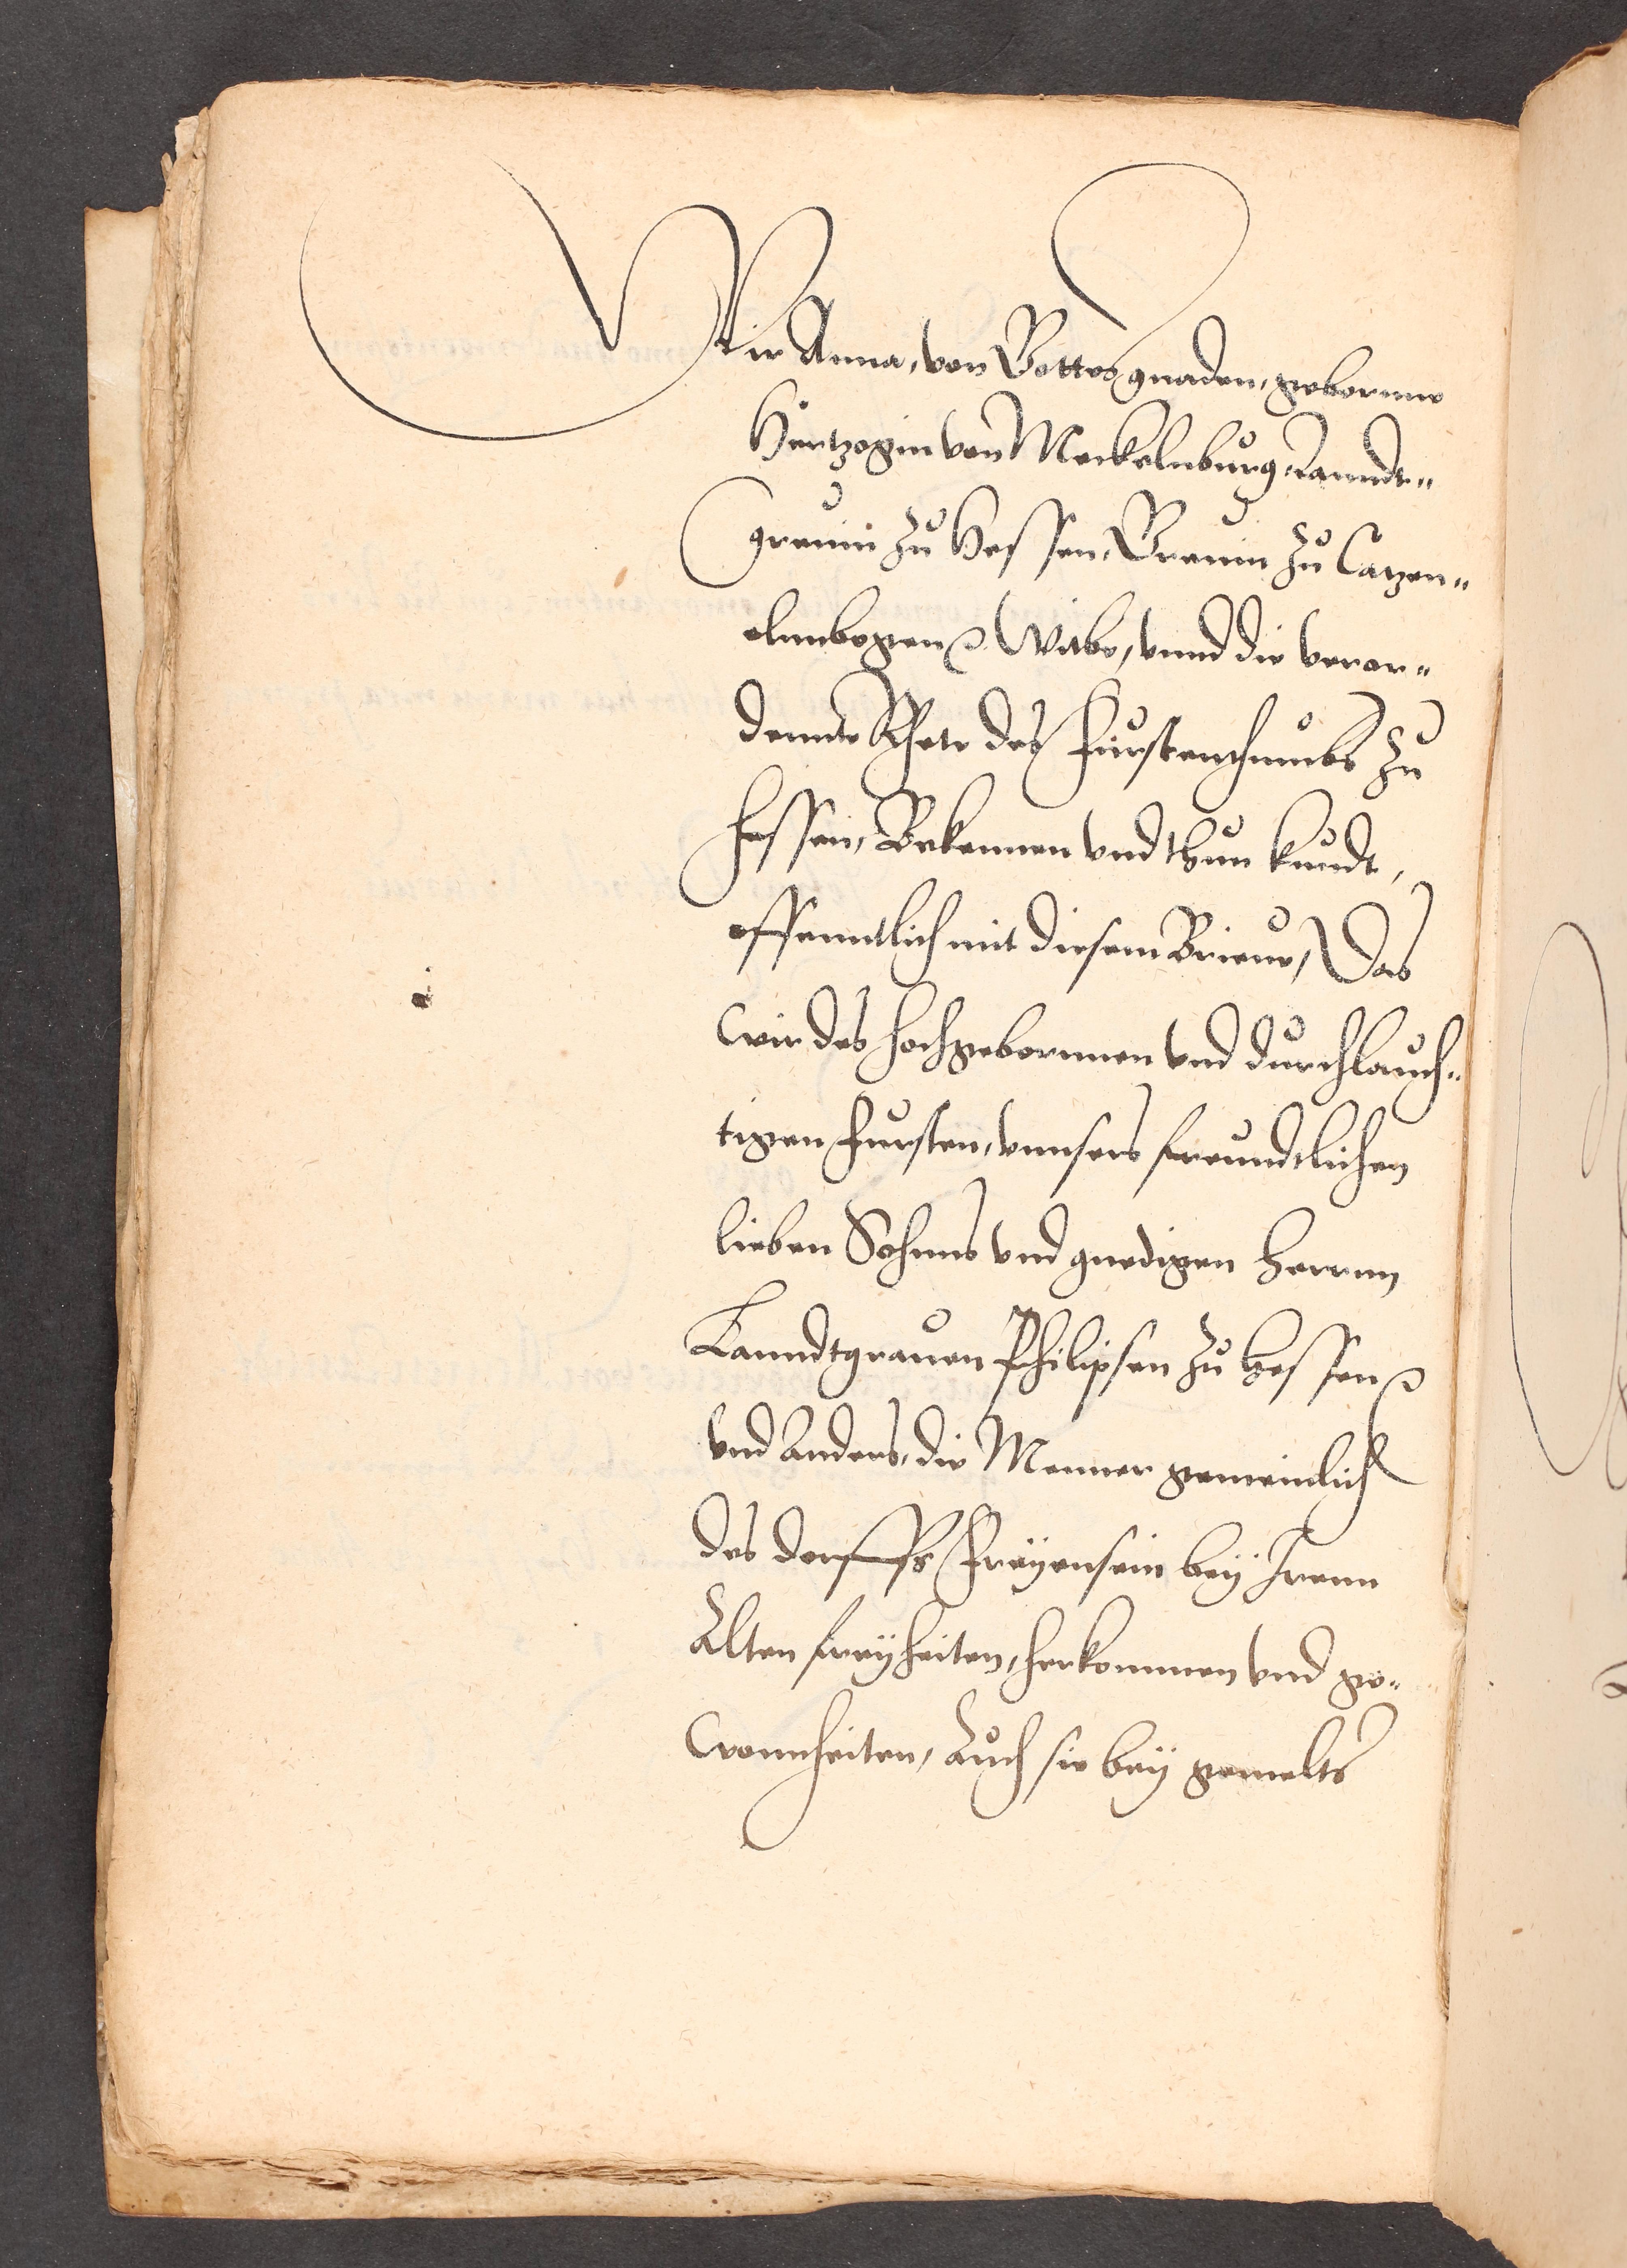 Wir Anna, von Gottes gnaden, geborne
Hertzogin von Meckelnburg, Lanndt„
greuin zu Hessen, Greuin zu Catzen„
elnnbogen ꝛc. Witbe, vnnd die veror„
dennte Rhete des Furstenthumbs zu
Hessen, Bekennen vnd thun kundt,
offenntlich mit diesem Brieue, Das
wir des hochgebornnen vnd durchlauch„
tigen Fursten, vnnsers freundtlichen
lieben Sohnns vnd gnedigen Herrnn
Lanndtgrauen Philipsen zu Hessen ꝛc.
vnd Anders, die Menner gemeinlich
des dorffs Freyensein bey Irenn
Alten freyheiten, herkommen vnd ge„
wonnheiten, Auch sie bey gemelts